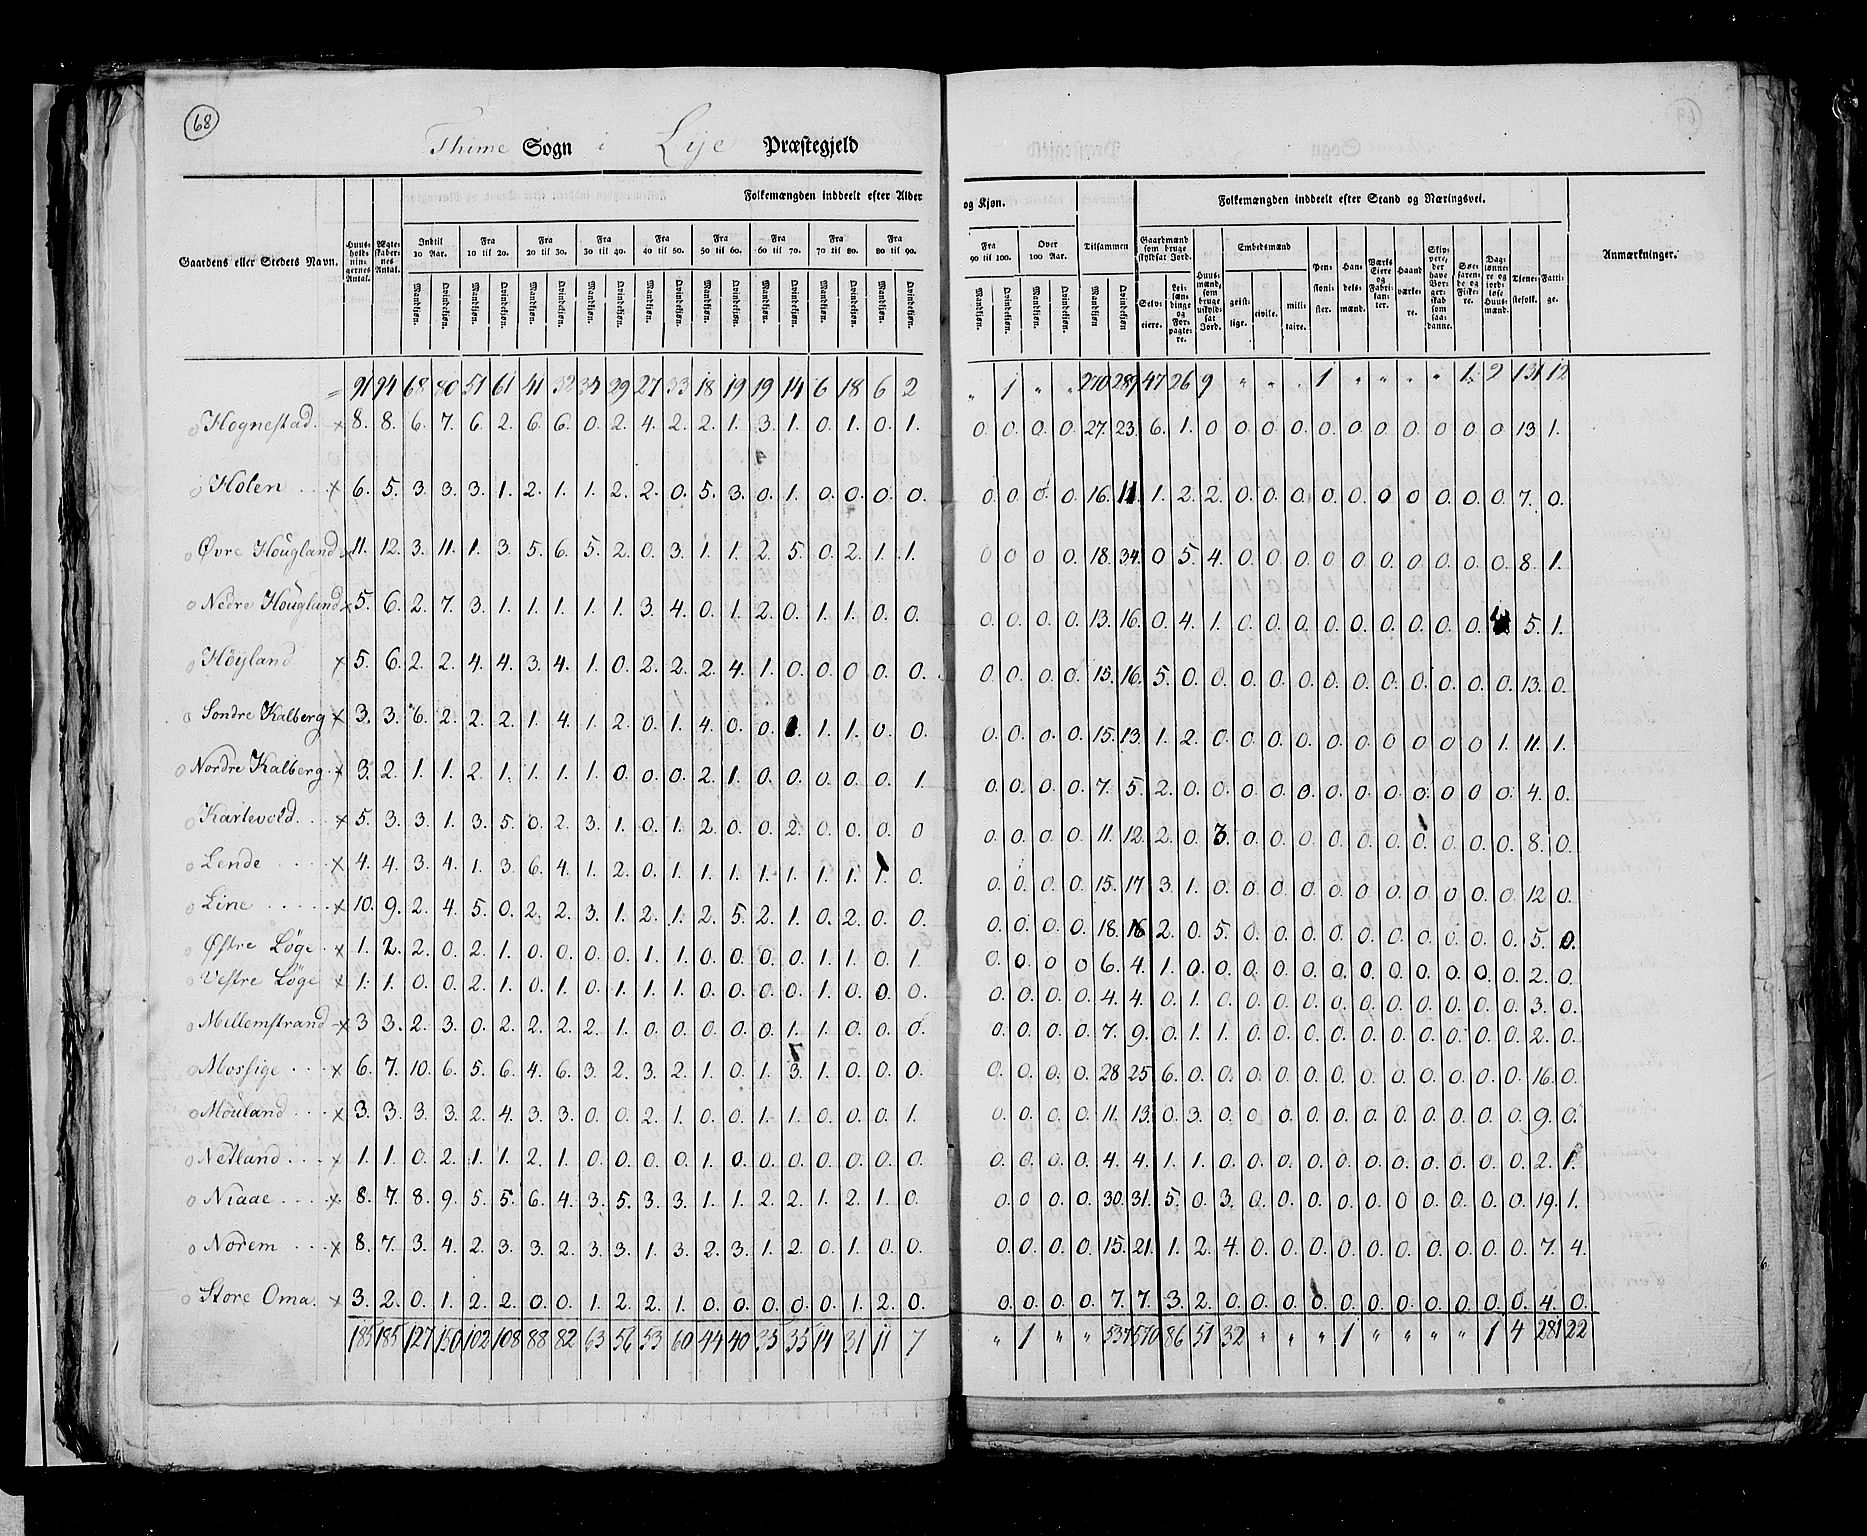 68
Thime Sogn i Lye Præstegjeld
Gaardens eller Stedets Navn.
Huusholdningernes Antal.
Ægteskabernes Antal.
Folkemængden inddeelt efter Alder og Kjøn.
Indtil 10 Aar. Fra 10 til 20. Fra 20 til 30. Fra 30 til 40. Fra 40 til 50. Fra 50 til 60. Fra 60 til 70. Fra 70 til 80. Fra 80 til 90. Fra 90 til 100. Over 100 Aar. Tilsammen
Mandkjøn. Qvindekjøn. Mandkjøn. Qvindekjøn. Mandkjøn. Qvindekjøn. Mandkjøn. Qvindekjøn. Mandkjøn. Qvindekjøn. Mandkjøn. Qvindekjøn. Mandkjøn. Qvindekjøn. Mandkjøn. Qvindekjøn. Mandkjøn. Qvindekjøn. Mandkjøn. Qvindekjøn. Mandkjøn. Qvindekjøn. Mandkjøn Qvindekjøn
Folkemængden inddeelt efter Stand og Næringsvei.
Gaardmænd som bruge skyldsat Jord.
Selveiere. Leilændinge og Forpagtere.
Huusmænd, som bruge uskyldsat Jord.
Embedsmænd
geistlige. civile. militaire.
Pensionister. Handelsmænd. Værks Eiere og Fabrikanter. Haandværkere. Skippere, der have Borgerskab som saadanne. Søefarende og Fiskere. Daglønnere og jordløse Huusmænd. Tjenestefolk. Fattige.
Anmærkninger.
= 91 94 68 80 51 61 41 32 34 29 27 33 18 19 19 14 6 18 6 2 " 1 " " 270 289 47 26 9 " " " 1 " " " " 1 2 131 12
Hognestad. x 8. 8. 6. 7. 6. 2. 6. 6. 0. 2. 4. 2. 2. 1. 3. 1. 0. 1. 0. 1. 0. 0. 0. 0. 27. 23. 6. 1. 0 0. 0. 0. 0. 0. 0. 0. 0 0 0 13 1.
Holen x 6. 5. 3. 3. 3. 1. 2. 1. 1. 2. 2. 0. 5. 3. 0. 1. 0. 0. 0. 0. 0. 0. 0. 0. 16. 11. 1. 2. 2. 0. 0. 0. 0. 0. 0 0 0. 0. 0. 7. 0.
Øvre Hougland x 11. 12. 3. 11. 1. 3. 5. 6. 5. 2. 0. 3. 1. 1. 2. 5. 0. 2. 1. 1. 0 0 0 0. 18. 34. 0 5. 4. 0 0 0 0 0. 0. 0. 0. 0. 0. 8. 1.
Nedre Hougland x 5. 6. 2. 7. 3. 1. 1. 1. 1. 1. 3. 4. 0. 1. 2. 0. 1. 1. 0. 0. 0. 0. 0. 0. 13. 16. 0. 4. 1. 0. 0. 0. 0. 0. 0. 0. 0. 0. 5. 1.
Höyland x 5. 6. 2. 2. 4. 4. 3. 4. 1. 0. 2. 2. 2. 4. 1. 0. 0. 0. 0. 0. 0. 0. 0. 0. 15. 16. 5. 0. 0. 0. 0. 0. 0. 0. 0. 0. 0. 0. 0. 13. 0.
Sondre Kalberg x 3. 3. 6. 2. 2. 2. 1. 4. 1. 2. 0. 1. 4. 0. 0. 1. 1. 1. 0. 0. 0. 0. 0. 0. 15. 13. 1. 2. 0 0. 0. 0. 0. 0. 0 0. 0 0 1. 11. 1.
Nordre Kalberg. x 3. 2. 1. 1. 2. 1. 1. 1. 1. 0. 0. 0. 2. 1. 0. 0. 0. 0. 0. 1. 0. 0. 0. 0. 7. 5. 2. 0. 0. 0. 0. 0. 0. 0. 0. 0. 0 0 0. 4. 0.
Karlevold. x 5. 3. 3. 1. 3. 5. 0. 2. 3. 1. 0. 1. 2. 0. 0. 2. 0. 0. 0. 0 0. 0. 0. 0. 11. 12. 2. 0. 3. 0. 0. 0. 0. 0. 0. 0. 0. 0. 0. 8. 0.
Lende x 4. 4. 3. 4. 1. 3. 6. 4. 1. 2. 0. 1. 1. 1. 1. 1. 1. 1. 1. 0. 0. 0. 0. 0. 15. 17 3. 1. 0. 0. 0. 0. 0. 0 0. 0. 0. 0. 0 12 0.
Line x 10. 9. 2. 4. 5. 0. 2. 2. 3. 1. 2. 1. 2. 5. 2. 1. 0. 2. 0. 0. 0. 0. 0. 0. 18. 16 2. 0. 5. 0. 0. 0. 0. 0. 0. 0. 0. 0. 0. 5. 0.
Østre Löge x 1. 2. 2. 0. 2. 1. 0. 0. 0. 0. 1. 1. 0. 0. 0. 0. 1. 1. 0. 1. 0. 0. 0 0 6. 4. 1. 0. 0. 0. 0. 0. 0. 0. 0. 0. 0. 0. 0. 2. 0.
Vestre Löge x 1. 1. 0. 0. 2. 1. 0. 1. 0. 1. 1. 1. 0. 0. 0. 0. 1. 0. 0. 0. 0. 0. 0. 0. 4. 4. 0. 1. 0. 0. 0. 0. 0. 0. 0. 0. 0. 0. 0. 3. 0.
Mellemstrand x 3 3. 2. 3. 0. 2. 2. 2. 2. 1. 0. 0. 0. 0. 0. 1. 1. 0. 0. 0. 0. 0. 0. 0. 7. 9. 0. 1. 1. 0. 0. 0. 0. 0. 0. 0. 0. 0. 0. 2. 0.
Mossige x 6. 7. 10. 6. 5. 6. 4. 6. 3. 2. 3. 2. 1. 0. 1. 3. 1. 0. 0. 0. 0. 0. 0. 0. 28 25 6. 0. 0. 0. 0. 0. 0. 0. 0. 0. 0. 0. 0. 16. 0.
Mouland x 3. 3. 3. 3. 2. 4. 3. 3. 0. 0. 2. 1. 0. 0. 1. 1. 0. 0. 0. 1. 0. 0. 0. 0. 11. 13 0. 3. 0. 0. 0. 0. 0. 0. 0. 0. 0. 0. 0. 9. 0.
Netland x 1. 1. 0. 2. 1. 1. 2. 1. 0. 0. 0. 0. 1. 0. 0. 0. 0. 0. 0. 0. 0. 0. 0. 0. 4. 4. 1. 1. 0. 0. 0. 0. 0. 0. 0. 0. 0. 0. 0. 2. 1.
Niaae x 8. 7. 8. 9. 5. 5. 6. 4. 3. 5. 3. 3. 1. 1. 2. 2. 1. 2. 1. 0. 0. 0. 0. 0. 30. 31. 5. 0. 3. 0. 0. 0. 0. 0. 0. 0. 0. 0. 0. 19. 1.
Norem x 8. 7. 3. 4. 2. 3. 3. 2. 3. 3. 1. 3. 2. 3. 1. 2. 0. 1. 0. 0. 0. 0. 0. 0. 15. 21. 1. 2. 4. 0. 0. 0. 0. 0. 0. 0. 0. 0. 0. 7. 4.
Store Oma. x 3. 2. 0. 1. 2. 2. 0. 0. 1. 2. 2. 1. 0. 0. 0. 0. 0. 1. 2. 0. 0. 0. 0. 0. 7. 7. 3. 2. 0. 0. 0. 0. 0. 0. 0. 0. 0. 0. 0. 4. 0.
185 185 127 150 102 108 88 82 63 56 53 60 44 40 35 35 14 31 11 7 " 1 " " 537 570 86 51 32 " " " 1 " " " " 1 4 281 22